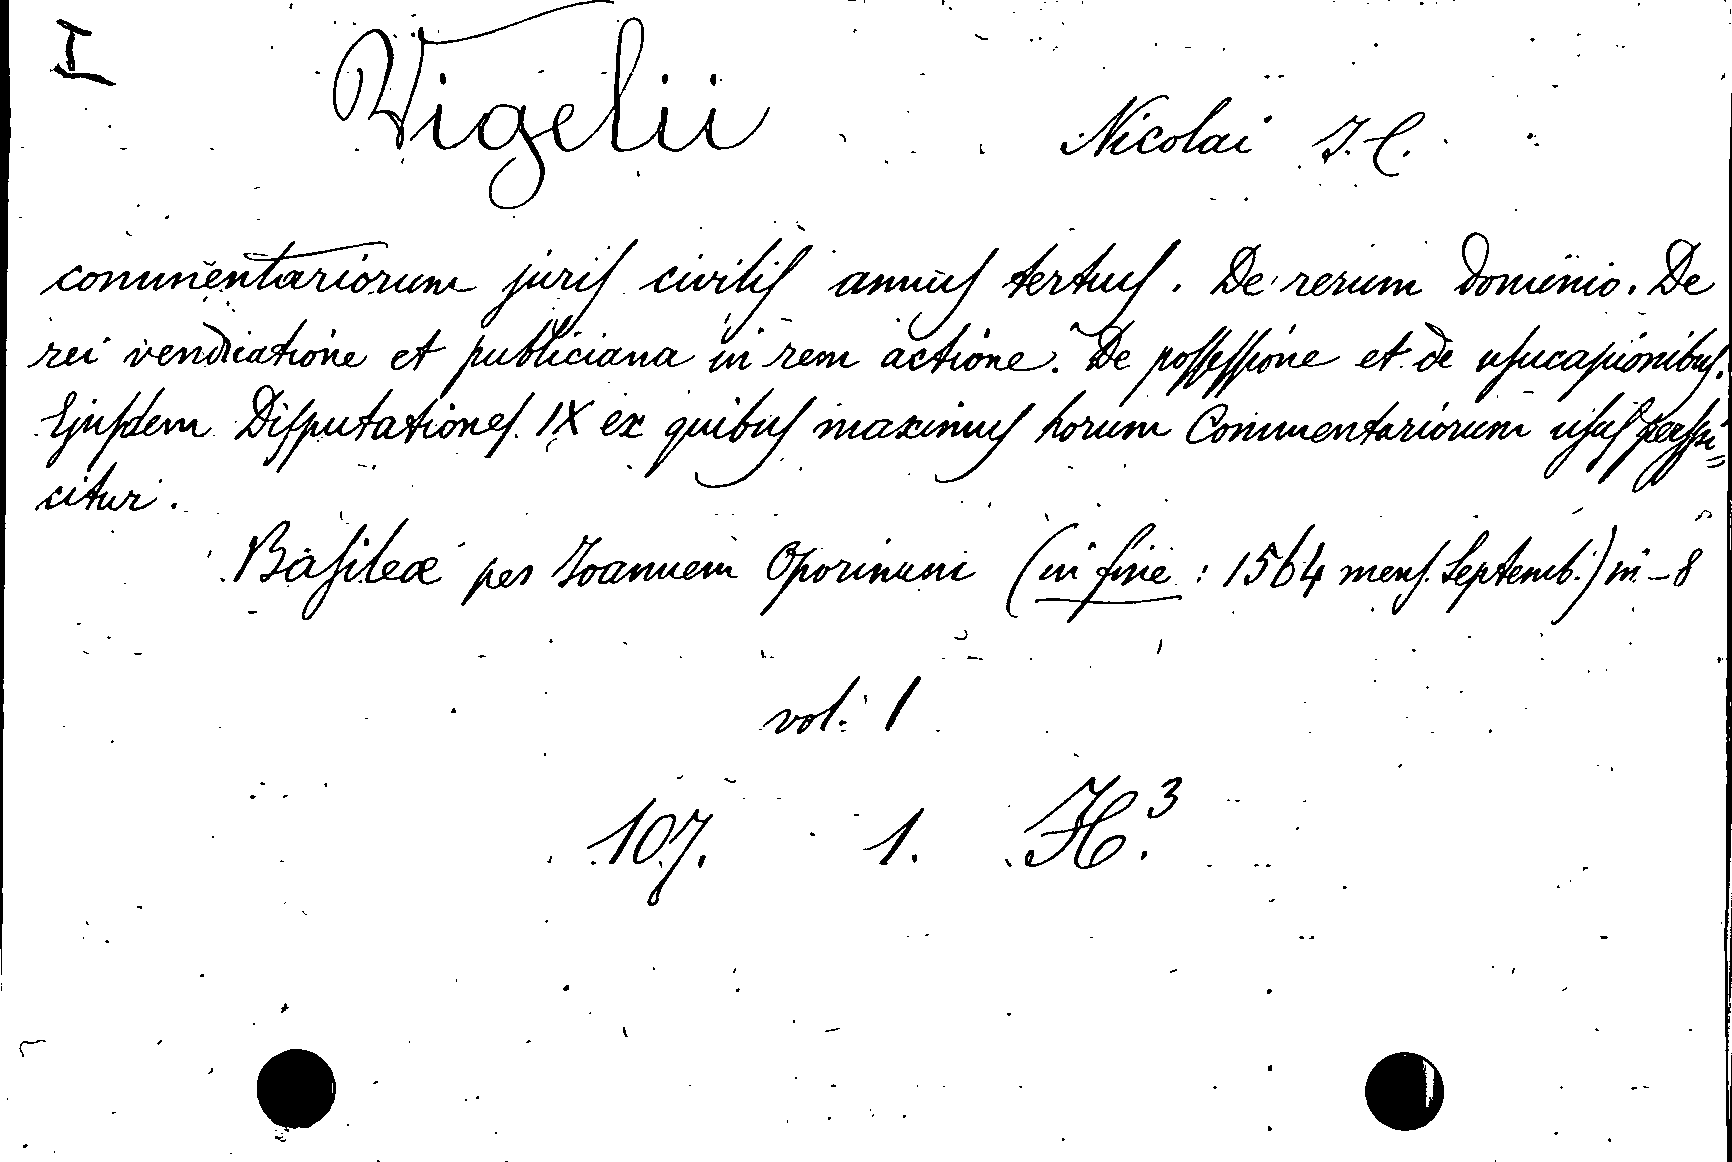 I
Vigelii Nicolai J.C.
commentariorum juris civilis annus tertius. De rerum dominio. De
rei vendicatione et publiciana in rem actione. De possessione et de usucapionibus.
Ejusdem Disputationes IX ex quibus maximus horum Commentariorum usus perspi=
citur.
Basileæ per Joannem Oporinum (in fine : 1564 mens. Septemb.) in-8
vol. 1
107. 1. H.³